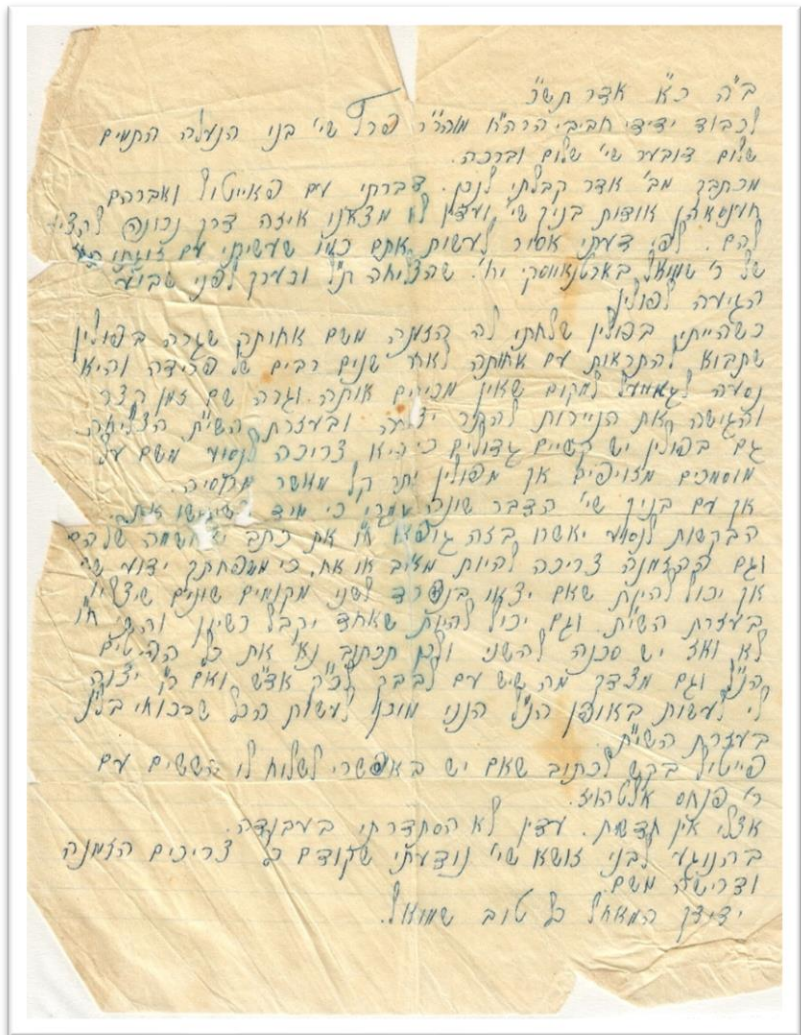 ב"ה כ"א אדר תש"כ
לכבוד ידידי חביבי הרה"ח מוהר"ר פרץ שי' בני הנעלה התמים
שלום דובער שי' שלום וברכה.
מכתבך מב' אדר קבלתי לנכון. דברתי עם פאייטיל ואברהם
אודות בניך שי' ועדין לא מצאנו איזה דרך נכונה להציל
להם. לפי דעתי אסור לעשות אתם כמו שעשיתי עם זוגתו
של ר' שמואל בארטנאווסקי יחי'. שהצליחה ת"ל ובערך לפני שבוע
הגיעה לפולין
כשהייתי בפולין שלחתי לה הזמנה משם אחותך שגרה בפולין
שתבוא להתראות עם אחותה לאחר שנים רבים של פרידה והיא
נסעה למקום שאין מכירים אותה וגרה שם זמן קצר
והגישה את הניירות להתיר יציאה ובעזרת השי"ת הצליחה.
גם בפולין יש קשיים גדולים כי היא צריכה לנסוע משם על
מוסמכים מזויפים אך מפולין יותר קל מאשר מרוסיה.
אך עם בניך שי' הדבר שונה לגמרי כי מיד כשיגישו את
הבקשות לנסוע יאשרו בזה גופא ח"ו את כתב האשמה שלהם
וגם ההזמנה צריכה להיות מאב או אח, כי משפחתך ידוע שם
אך יכול להיות שאם יצאו בנפרד לשני מקומים שונים שיצליחו
בעזרת השי"ת. וגם יכול להיות שאחד יקבל רשיון והשני ח"ו
לא ואז יש סכנה להשני ולכן תכתוב נא את כל הפרטים
הנ"ל וגם מצדך מה שיש עם לבבך לכ"ק אד"ש ואם כ"ק יצוה
לי לעשות באופן הנ"ל הנני מוכן לעשות הכל שבכוחי בל"נ
בעזרת השי"ת.
פייטיל בקש לכתוב שאם יש באפשרי לשלוח לו הששים עם
ר' פנחס אלטהויז.
אצלי אין חדשות. עדין לא הסתדרתי בעבודה.
בהנוגע לבני זושא שי' נודעתי שקודם כל צריכים הזמנה
ודרישה משם.
ידידך המאחל כל טוב שמואל.